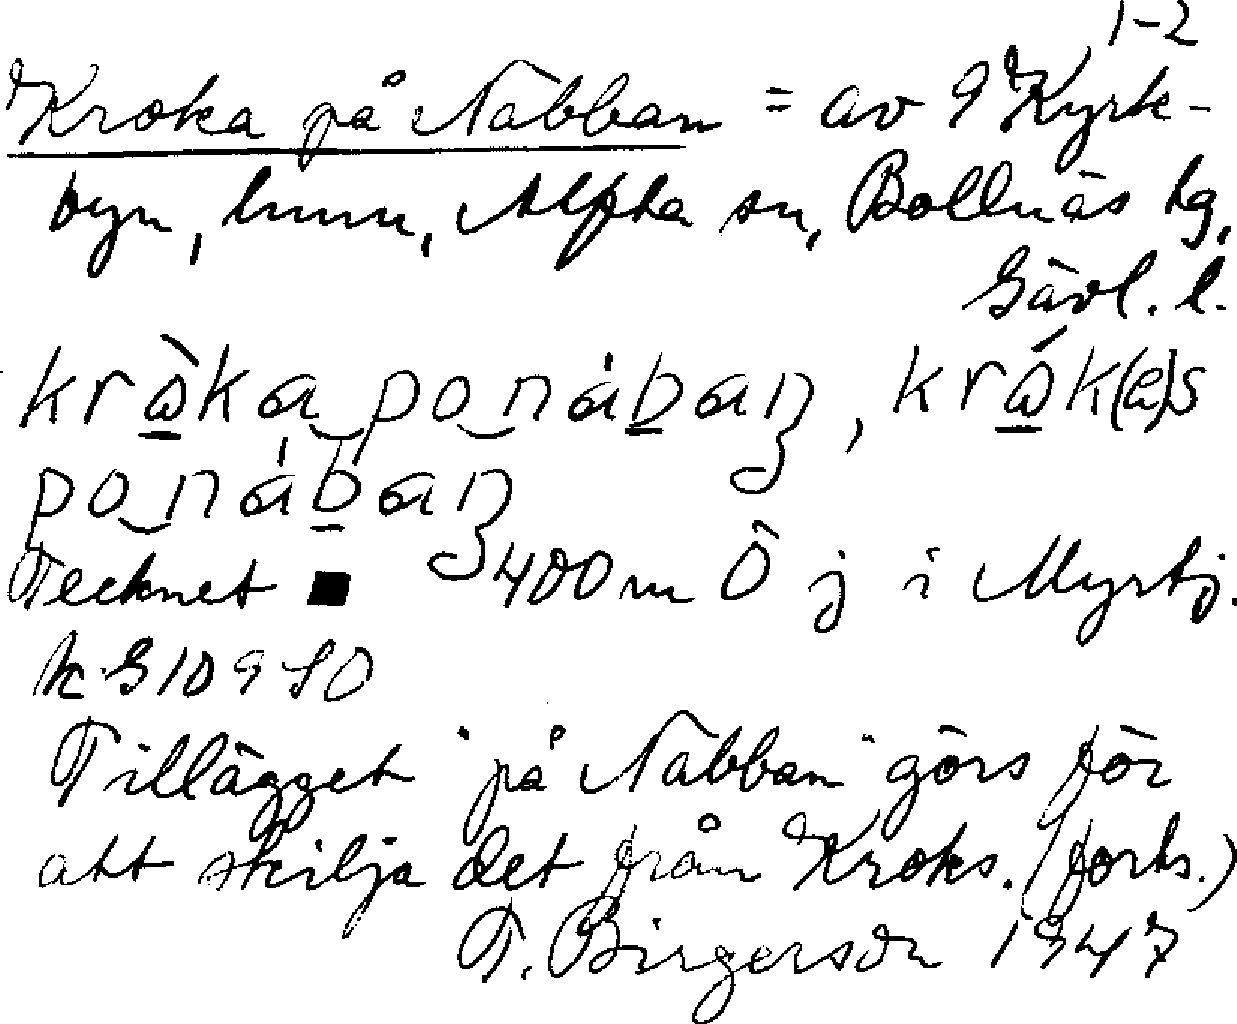 1-2
Kroka på Nabban = av 9 Kyrk-
byn, hmn, Alfta sn, Bollnäs tg,
Gävl. l.
kràka ponában, krák(e)s
ponában
Tecknet ■ 400 m Ö j i Myrtj.
k G 10 9 S O
Tillägget "på Nabban" görs för
att skilja det från Kroks. (forts.)
T. Birgerson 1947